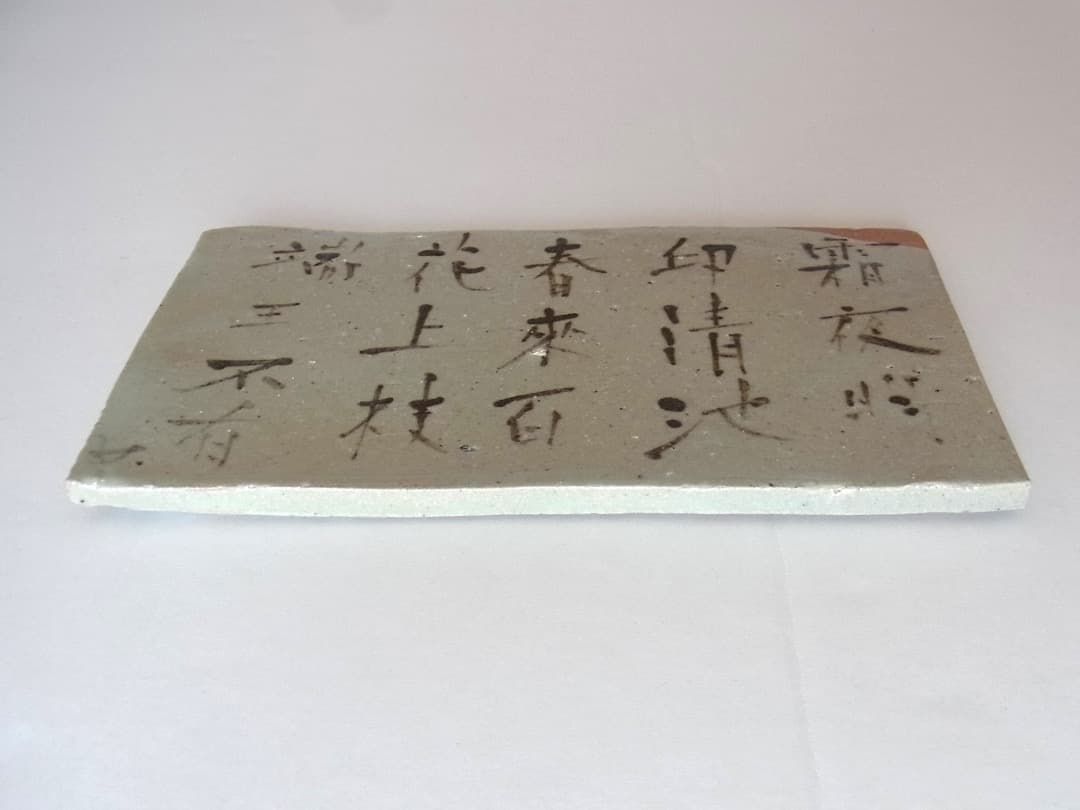 霜夜
印清池
春來百
花上枝
三不